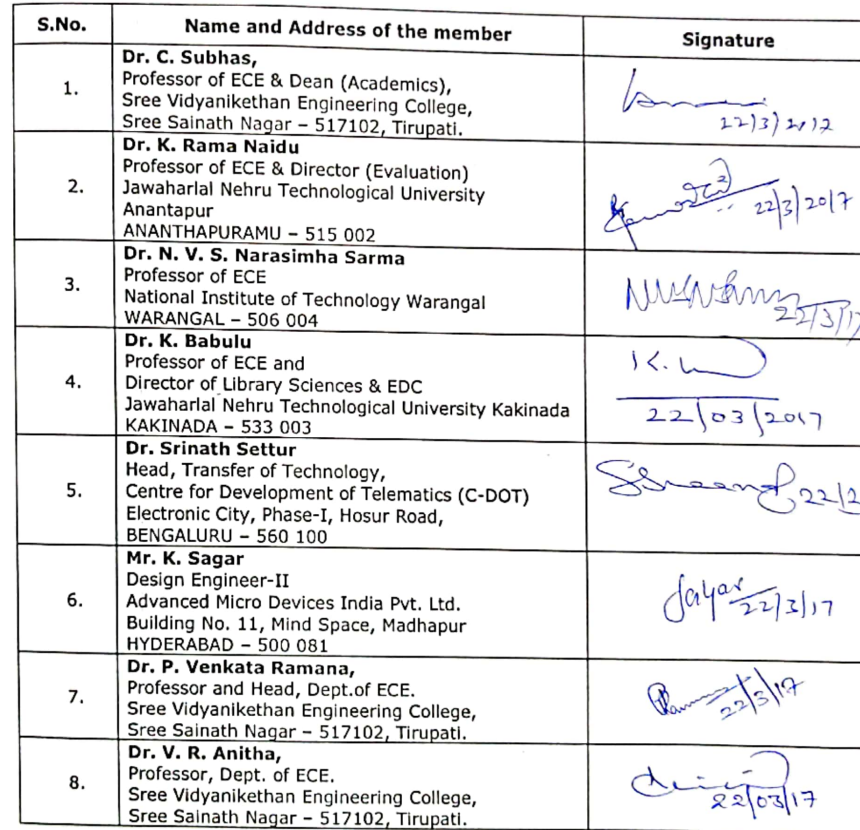 S.No. Name and Address of the member Signature
1. Dr. C. Subhas,
Professor of ECE & Dean (Academics),
Sree Vidyanikethan Engineering College,
Sree Sainath Nagar – 517102, Tirupati.
22/3/2017
2. Dr. K. Rama Naidu
Professor of ECE & Director (Evaluation)
Jawaharlal Nehru Technological University
Anantapur
ANANTHAPURAMU – 515 002
22/3/2017
3. Dr. N. V. S. Narasimha Sarma
Professor of ECE
National Institute of Technology Warangal
WARANGAL – 506 004
22/3/17
4. Dr. K. Babulu
Professor of ECE and
Director of Library Sciences & EDC
Jawaharlal Nehru Technological University Kakinada
KAKINADA – 533 003
22/03/2017
5. Dr. Srinath Settur
Head, Transfer of Technology,
Centre for Development of Telematics (C-DOT)
Electronic City, Phase-I, Hosur Road,
BENGALURU – 560 100
6. Mr. K. Sagar
Design Engineer-II
Advanced Micro Devices India Pvt. Ltd.
Building No. 11, Mind Space, Madhapur
HYDERABAD – 500 081
Sagar 22/3/17
7. Dr. P. Venkata Ramana,
Professor and Head, Dept.of ECE.
Sree Vidyanikethan Engineering College,
Sree Sainath Nagar – 517102, Tirupati.
22/3/17
8. Dr. V. R. Anitha,
Professor, Dept. of ECE.
Sree Vidyanikethan Engineering College,
Sree Sainath Nagar – 517102, Tirupati.
22/03/17